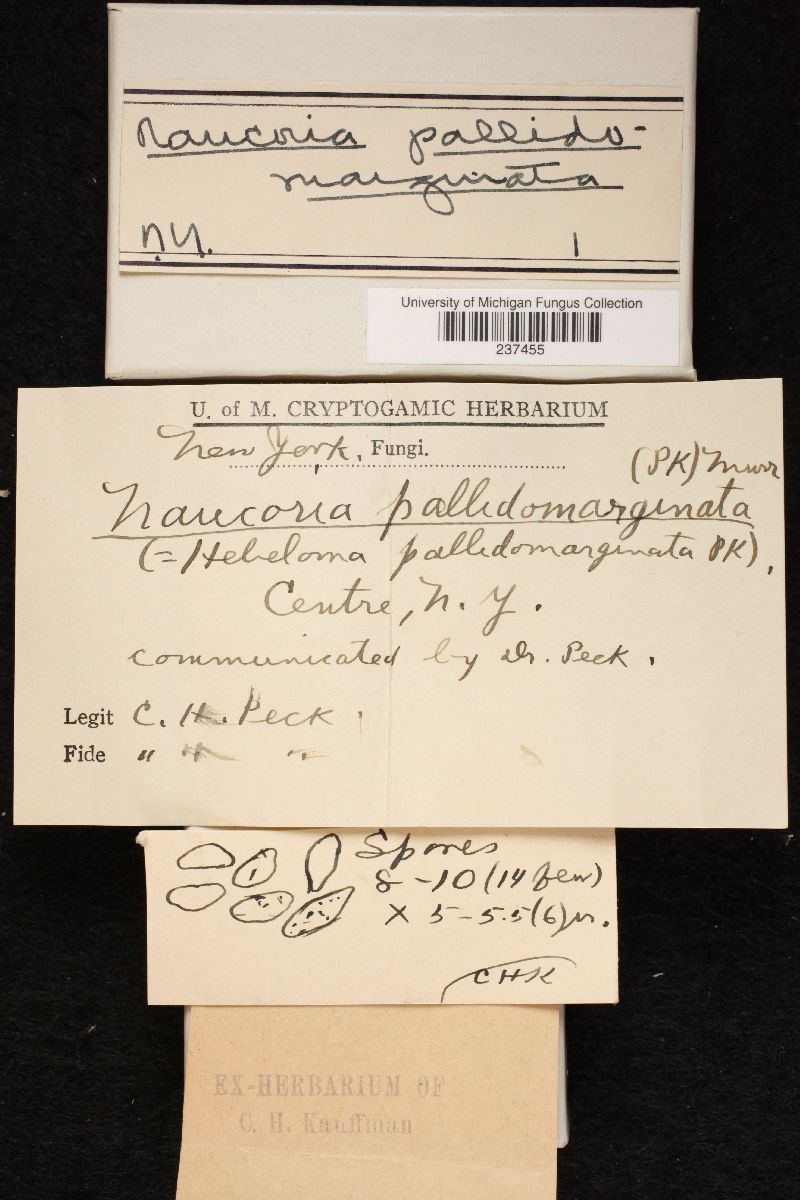 Naucoria pallido-
marginata
N.Y. 1
University of Michigan Fungus Collection
237455
U. of M. CRYPTOGAMIC HERBARIUM
New York, Fungi.
(PK) Murr
Naucoria pallidomarginata
(= Hebeloma pallidomarginata PK),
Centre, N. Y.
communicated by Dr. Peck.
Legit C. H. Peck.
Fide " " "
Spores
8-10 (14 few)
X 5-5.5(6)µ.
CHK
EX-HERBARIUM OF
C. H. Kauffman